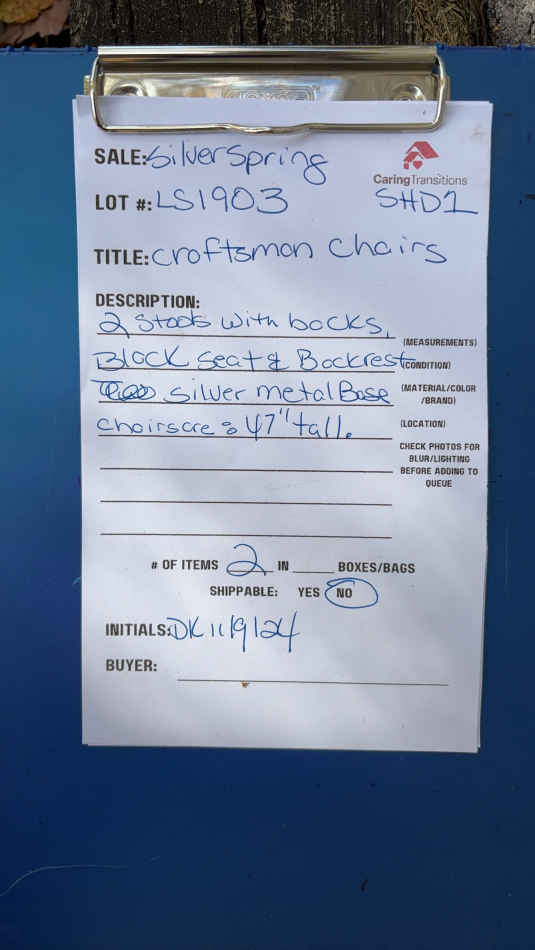 SALE: Silver Spring
CaringTransitions
LOT #: LS1903 SHD1
TITLE: Craftsman Chairs
DESCRIPTION:
2 Stools with backs,
(MEASUREMENTS)
Black Seat & Backrest
(CONDITION)
silver metal Base
(MATERIAL/COLOR
/BRAND)
chairs are 8 47" tall.
(LOCATION)
CHECK PHOTOS FOR
BLUR/LIGHTING
BEFORE ADDING TO
QUEUE
# OF ITEMS 2 IN ____ BOXES/BAGS
SHIPPABLE: YES NO
INITIALS: DK 11/9/24
BUYER: